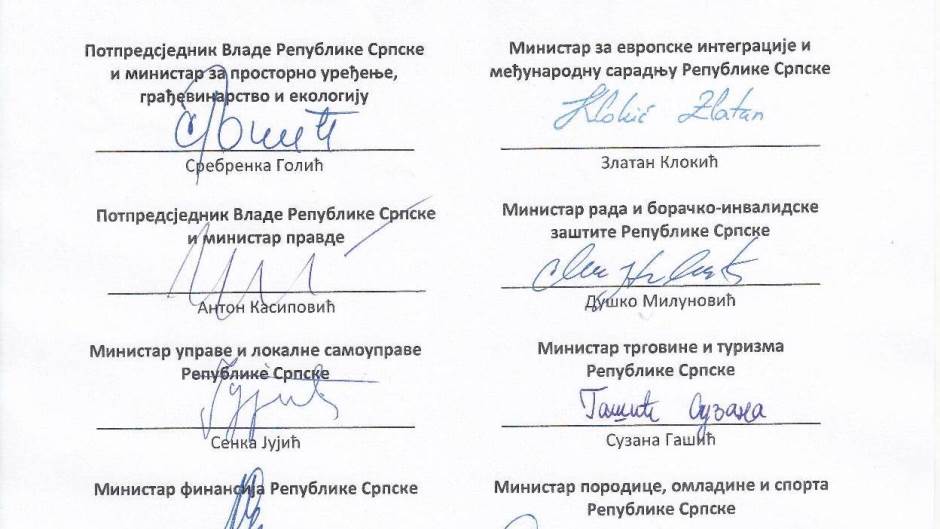 Потпредсједник Владе Републике Српске
и министар за просторно уређење,
грађевинарство и екологију
Сребренка Голић
Министар за европске интеграције и
међународну сарадњу Републике Српске
Klokić Zlatan
Златан Клокић
Потпредсједник Владе Републике Српске
и министар правде
Антон Касиповић
Министар рада и борачко-инвалидске
заштите Републике Српске
Душко Милуновић
Министар управе и локалне самоуправе
Републике Српске
Сенка Јујић
Министар трговине и туризма
Републике Српске
Гашић Сузана
Сузана Гашић
Министар финансија Републике Српске
Министар породице, омладине и спорта
Републике Српске